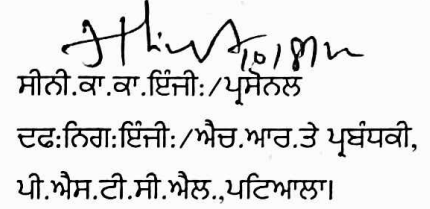 ਸੀਨੀ.ਕਾ.ਕਾ.ਇੰਜੀ:/ਪ੍ਰਸੋਨਲ
ਦਫ:ਨਿਗ:ਇੰਜੀ:/ਐਚ.ਆਰ.ਤੇ ਪ੍ਰਬੰਧਕੀ,
ਪੀ.ਐਸ.ਟੀ.ਸੀ.ਐਲ.,ਪਟਿਆਲਾ।